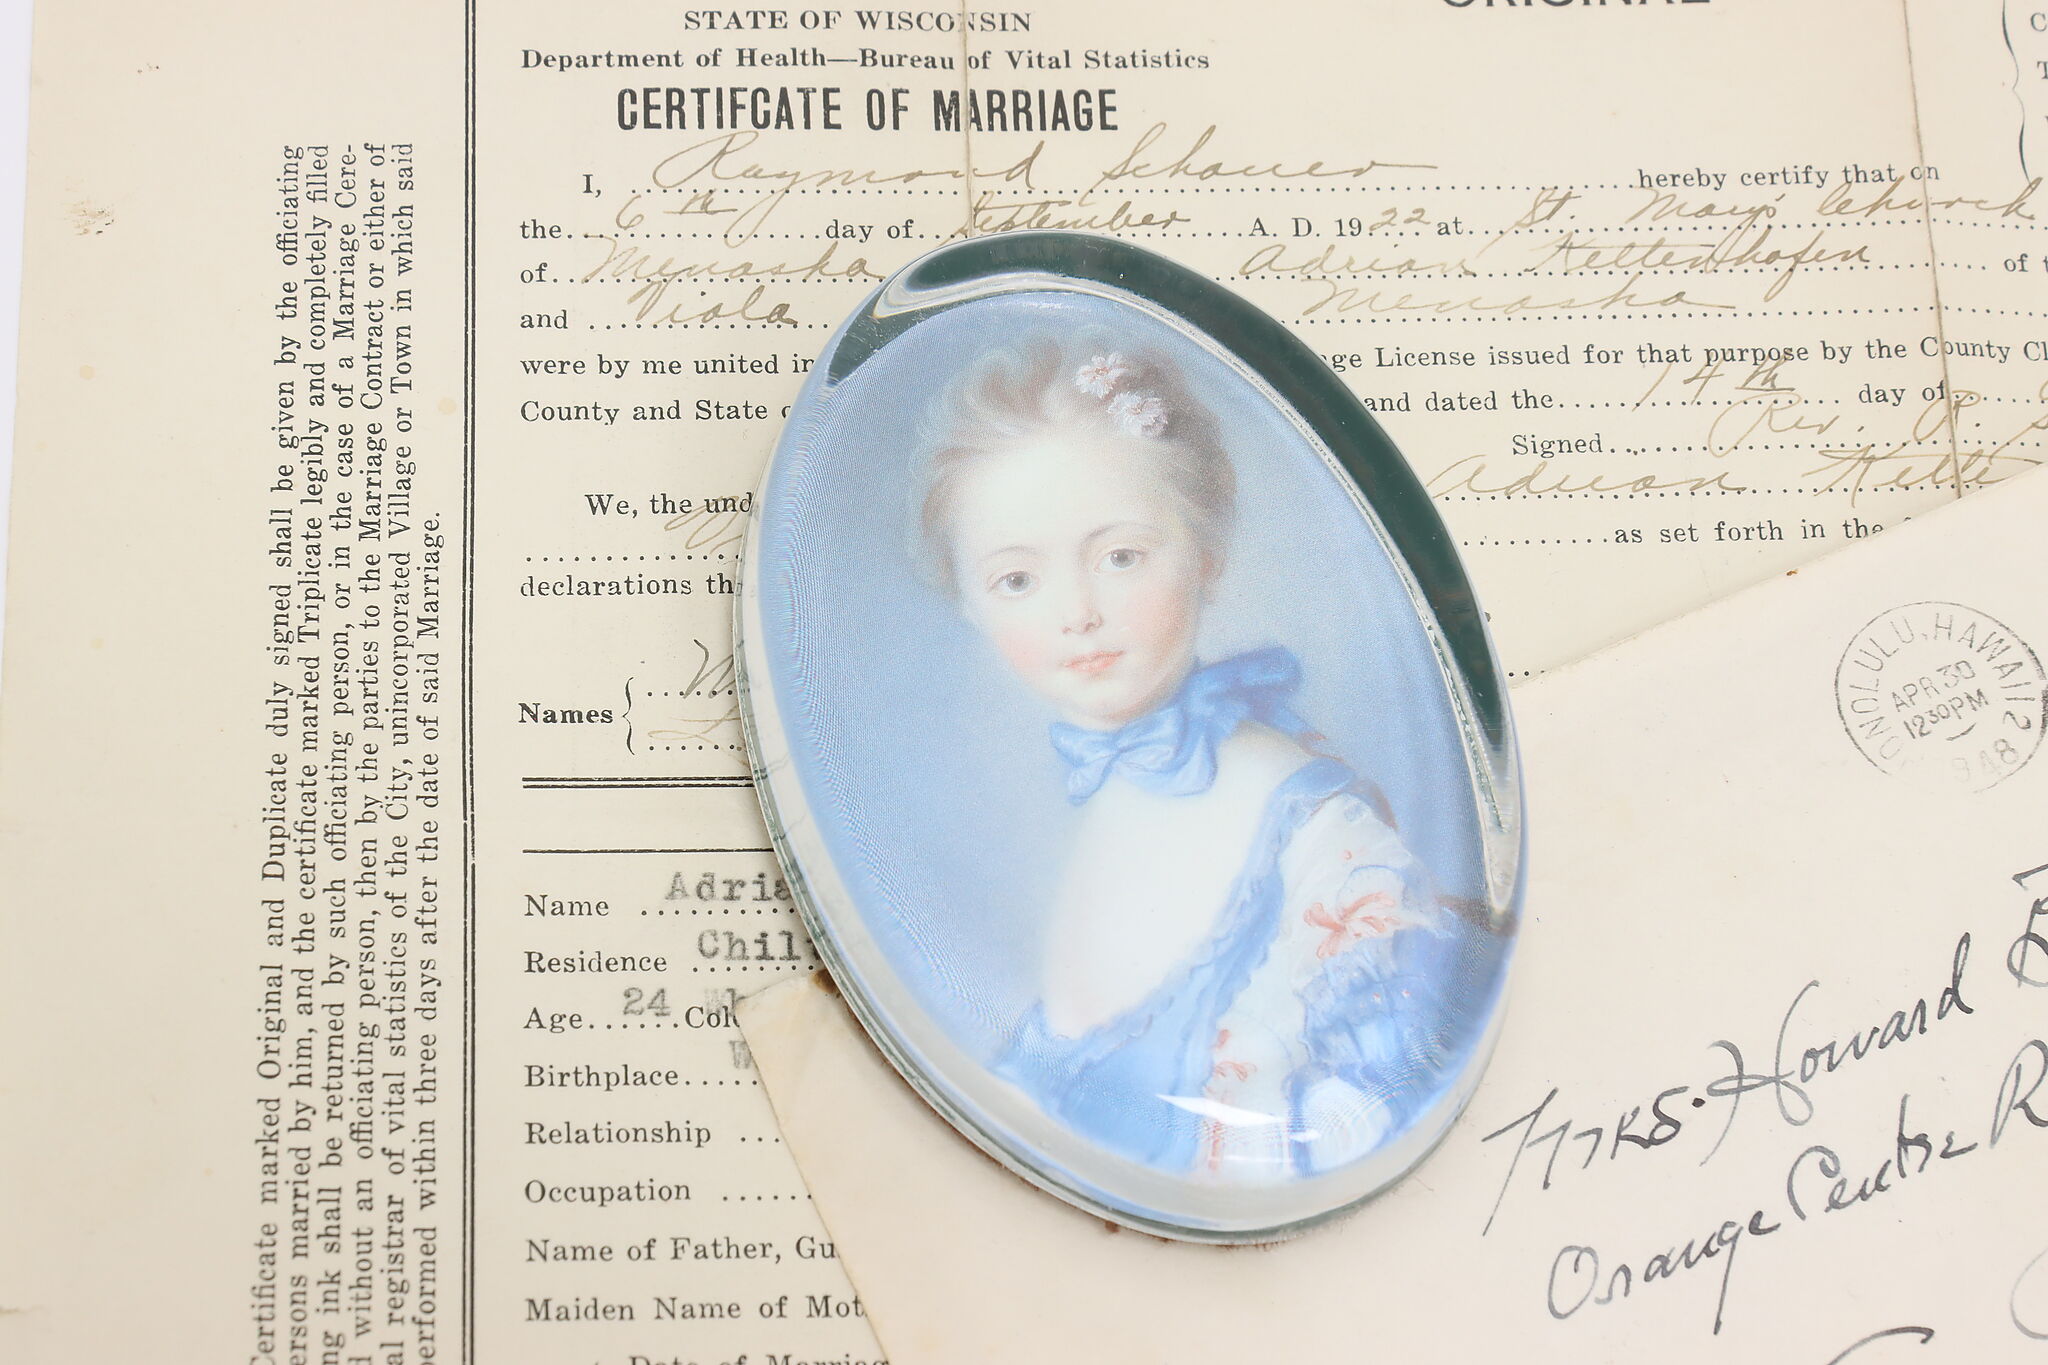 ORIGINAL
STATE OF WISCONSIN
Department of Health—Bureau of Vital Statistics
CERTIFCATE OF MARRIAGE
I, Raymond Schauer hereby certify that on
the 6th day of September A. D. 1922 at St. Mary's Church
of Menasha Adrian Keltenhofen of
and Viola Menasha
were by me united in ge License issued for that purpose by the County Cl
County and State and dated the 14th day of
Signed Rev. P.
We, the und Adrian Kelte
as set forth in the
declarations th
Names
Name Adria
Residence Chil
Age 24 Wh Col
Birthplace W
Relationship
Occupation
Name of Father, Gu
Maiden Name of Mot
Date of Marriag
Certificate marked Original and Duplicate duly signed shall be given by the officiating
ersons married by him, and the certificate marked Triplicate legibly and completely filled
ng ink shall be returned by such officiating person, or in the case of a Marriage Cere-
d without an officiating person, then by the parties to the Marriage Contract or either of
al registrar of vital statistics of the City, unincorporated Village or Town in which said
performed within three days after the date of said Marriage.
HONOLULU, HAWAII 2
APR 30
1230PM
1948
Mrs. Howard
Orange Centre R